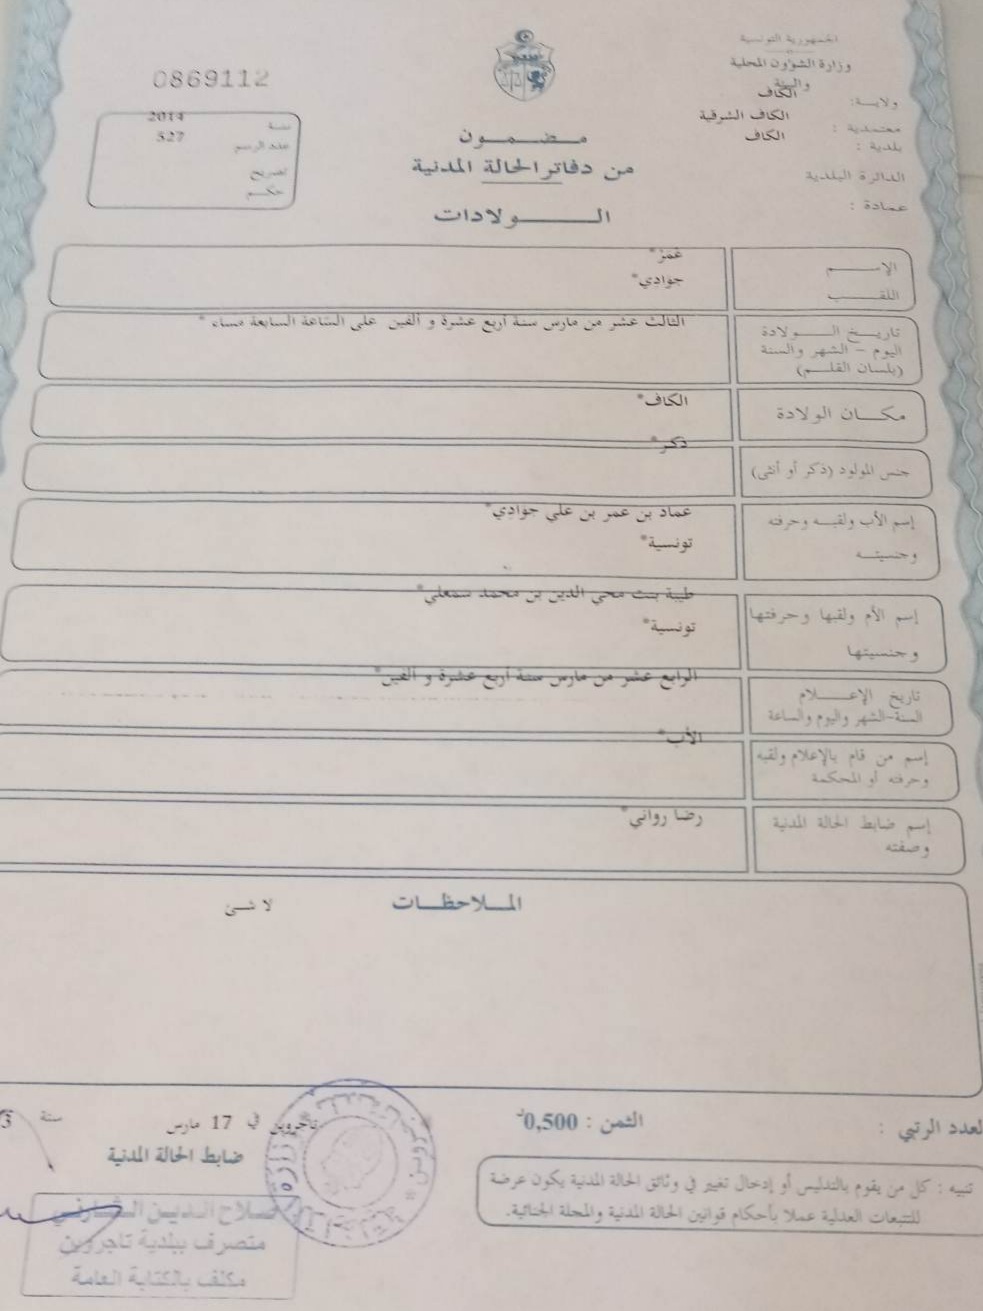 الجمهورية التونسية
وزارة الشؤون المحلية
والبيئة
ولاية: الكاف
معتمدية : الكاف الشرقية
بلدية : الكاف
الدائرة البلدية
عمادة :
0869112
سنة 2014
عدد الرسم 527
تصريح
حكم
مضمون
من دفاتر الحالة المدنية
الولادات
الإسم عمر*
اللقب جوادي*
تاريخ الولادة
اليوم - الشهر والسنة
(بلسان القلم)
الثالث عشر من مارس سنة أربع عشرة و ألفين على الساعة السابعة مساء *
مكان الولادة الكاف*
جنس المولود (ذكر أو أنثى) ذكر*
إسم الأب ولقبه وحرفته عماد بن عمر بن علي جوادي*
وجنسيته تونسية*
إسم الأم ولقبها وحرفتها طيبة بنت محي الدين بن محمد سمعلي*
وجنسيتها تونسية*
تاريخ الإعلام الرابع عشر من مارس سنة أربع عشرة و ألفين*
السنة-الشهر واليوم والساعة
إسم من قام بالإعلام ولقبه الأب*
وحرفته أو المحكمة
إسم ضابط الحالة المدنية رضا رواني*
وصفته
الملاحظات لا شئ
لعدد الرتبي :
الثمن : 0,500د
تاجروين في 17 مارس سنة
ضابط الحالة المدنية
تنبيه : كل من يقوم بالتدليس أو إدخال تغيير في وثائق الحالة المدنية يكون عرضة
للتتبعات العدلية عملا بأحكام قوانين الحالة المدنية والمجلة الجنائية.
صلاح الدين
متصرف ببلدية تاجروين
مكلف بالكتابة العامة